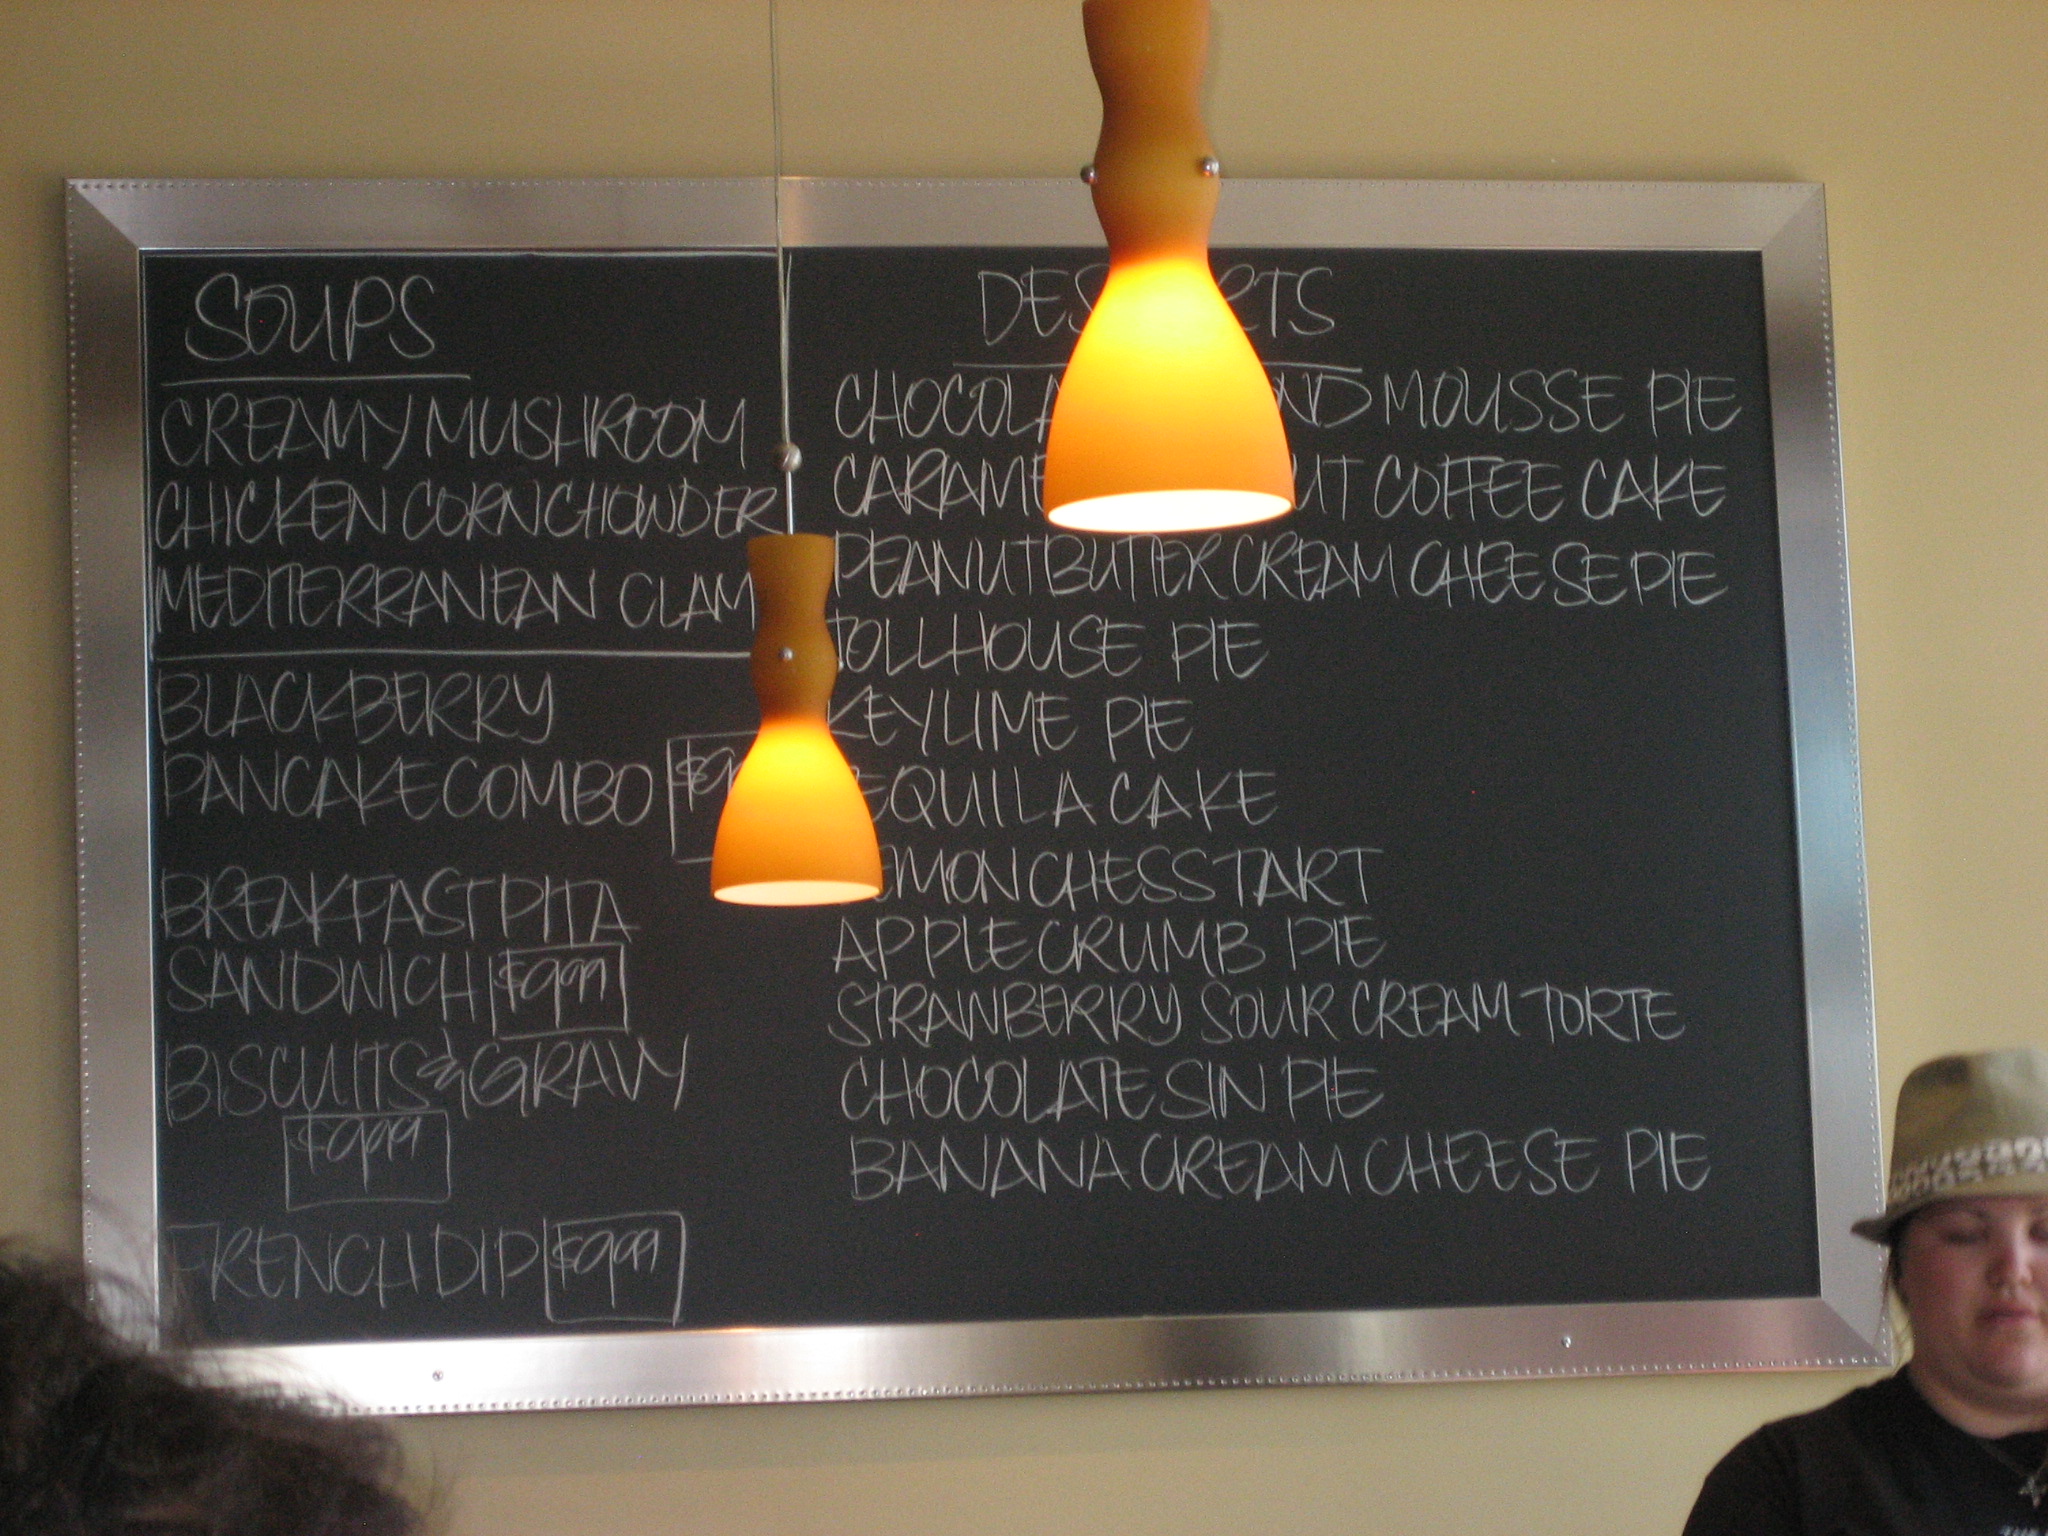 SOUPS
CREAMY MUSHROOM
CHICKEN CORN CHOWDER
MEDITERRANEAN CLAM
BLACKBERRY
PANCAKE COMBO
BREAKFAST PITA
SANDWICH $9.99
BISCUITS & GRAVY
$9.99
FRENCH DIP $9.99
MOUSSE PIE
COFFEE CAKE
PEANUT BUTTER CREAM CHEESE PIE
TOLLHOUSE PIE
KEY LIME PIE
CAKE
CHESS TART
APPLE CRUMB PIE
STRAWBERRY SOUR CREAM TORTE
CHOCOLATE SIN PIE
BANANA CREAM CHEESE PIE